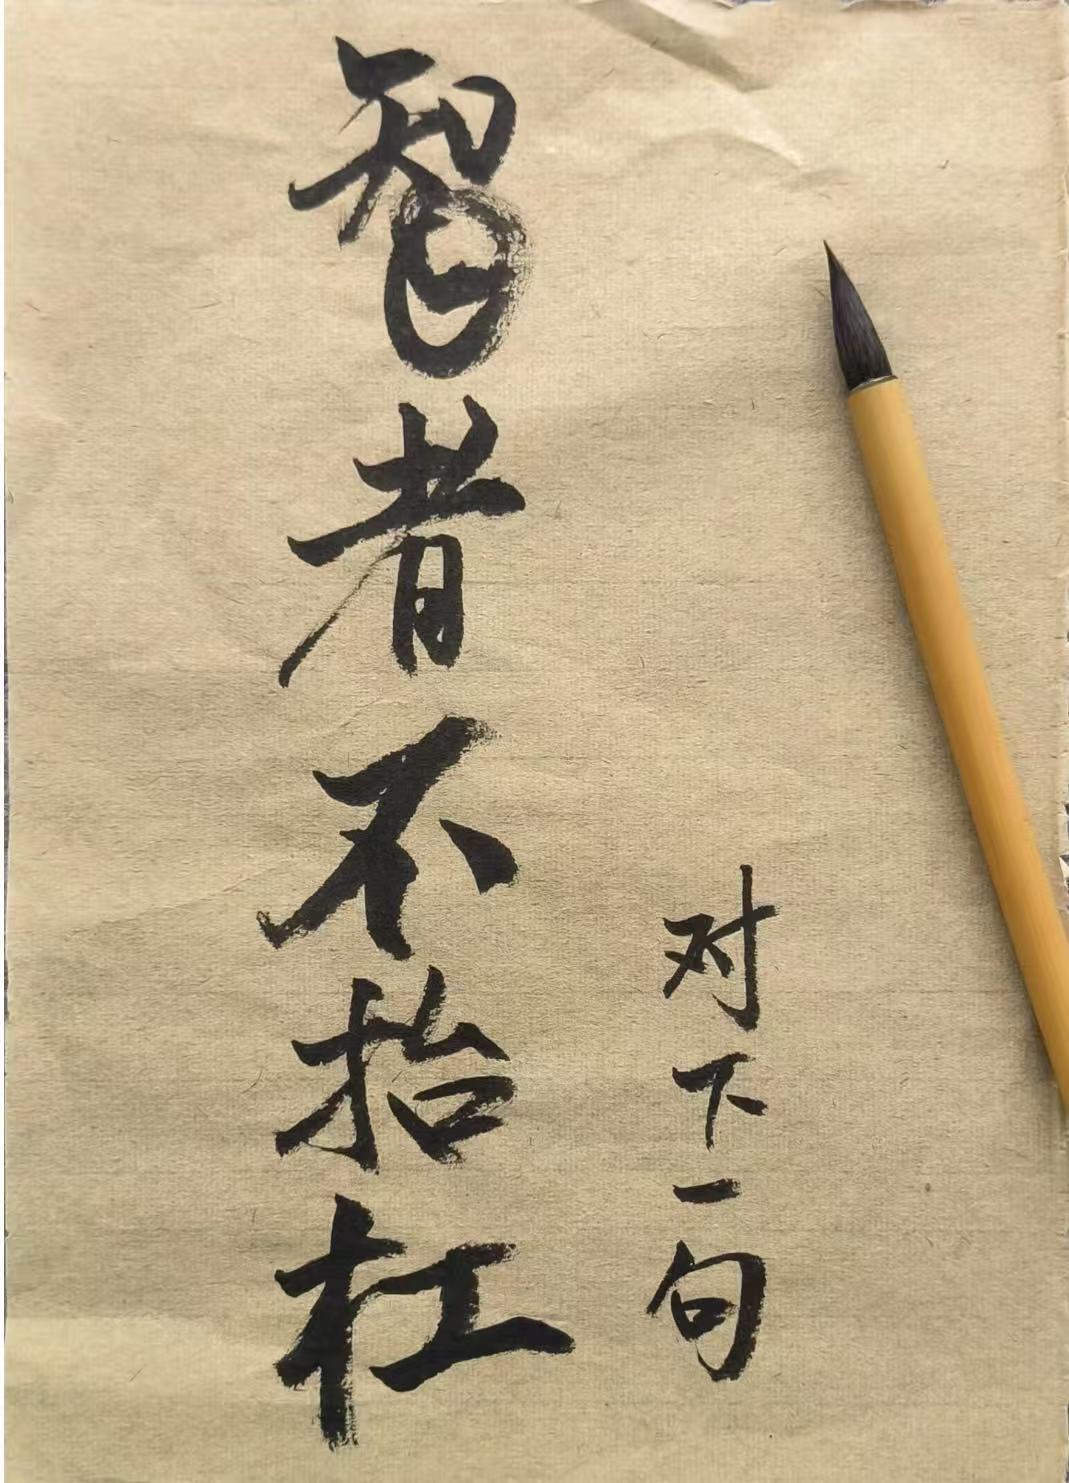 智者不抬杠
对下一句